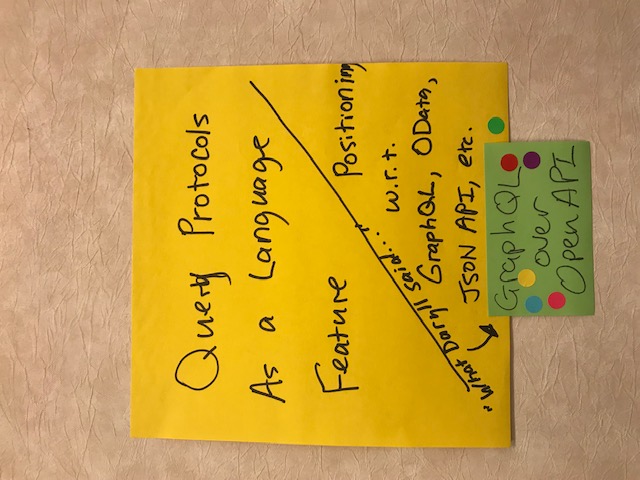 Query Protocols
As a Language
Feature
Positioning
w.r.t.
GraphQL, OData,
JSON API, etc.
"What Daryll said..."
GraphQL
over
Open API